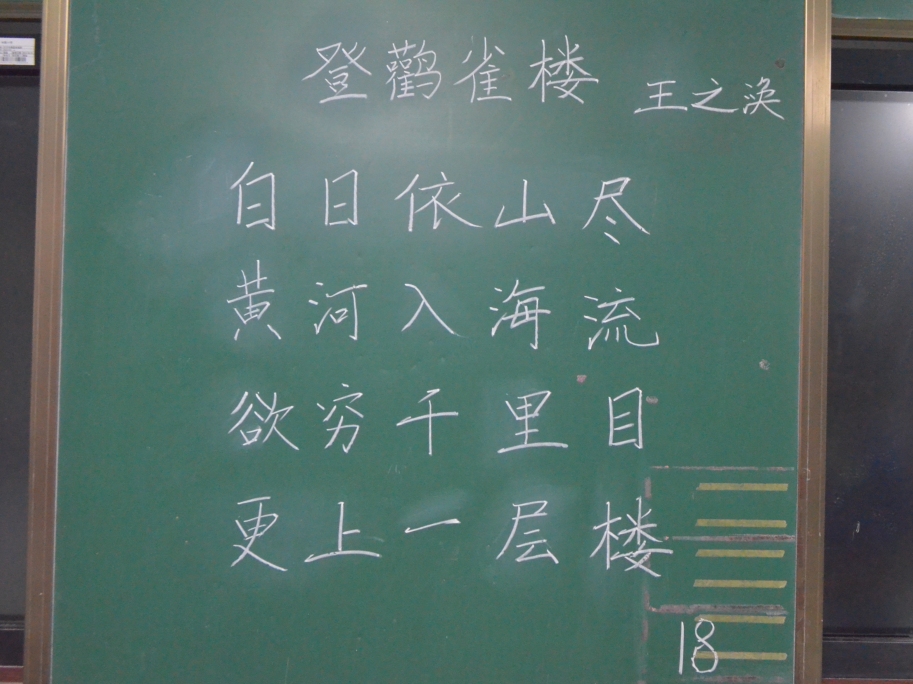 登鹳雀楼
王之涣
白日依山尽
黄河入海流
欲穷千里目
更上一层楼
18